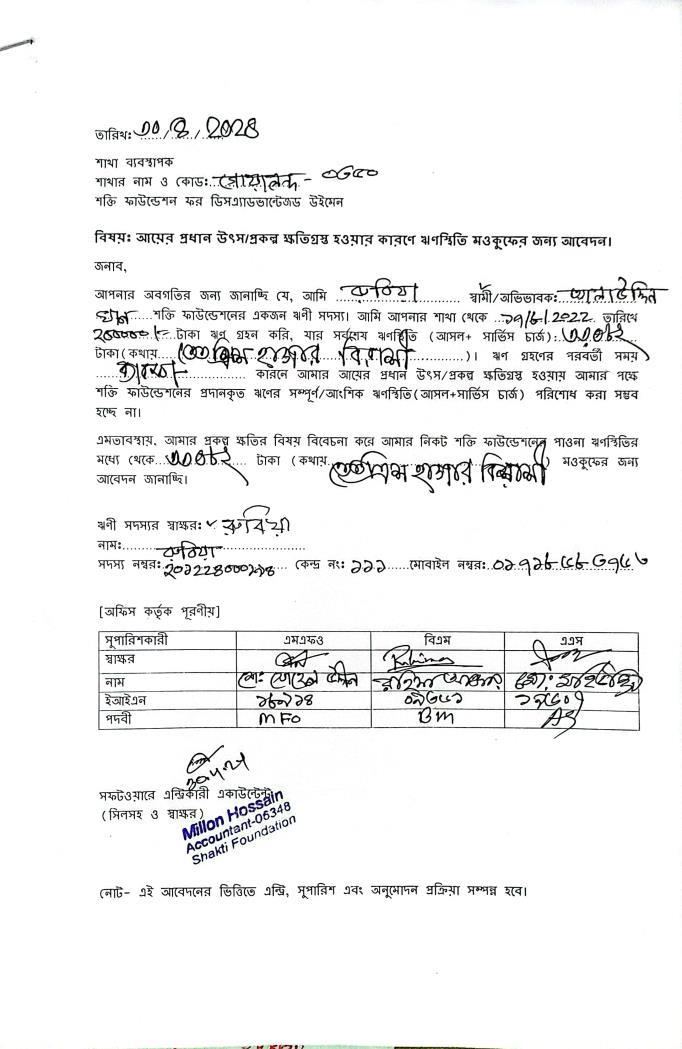 তারিখ:
শাখা ব্যবস্থাপক
শাখার নাম ও কোড: গোয়ালন্দ -
শক্তি ফাউন্ডেশন ফর ডিসএ্যাডভান্টেজড উইমেন
বিষয়: আয়ের প্রধান উৎস/প্রকল্প ক্ষতিগ্রস্ত হওয়ার কারণে ঋণস্থিতি মওকুফের জন্য আবেদন।
জনাব,
আপনার অবগতির জন্য জানাচ্ছি যে, আমি রুবিয়া স্বামী/অভিভাবক: আলাউদ্দিন
খান শক্তি ফাউন্ডেশনের একজন ঋণী সদস্য। আমি আপনার শাখা থেকে তারিখে
টাকা ঋণ গ্রহন করি, যার সর্বশেষ ঋণস্থিতি (আসল+ সার্ভিস চার্জ): ৩৩০৮২
টাকা(কথায় তেত্রিশ হাজার বিরাশী)। ঋণ গ্রহণের পরবর্তী সময়
কারনে আমার আয়ের প্রধান উৎস/প্রকল্প ক্ষতিগ্রস্ত হওয়ায় আমার পক্ষে
শক্তি ফাউন্ডেশনের প্রদানকৃত ঋণের সম্পূর্ণ/আংশিক ঋণস্থিতি(আসল+সার্ভিস চার্জ) পরিশোধ করা সম্ভব
হচ্ছে না।
এমতাবস্থায়, আমার প্রকল্প ক্ষতির বিষয় বিবেচনা করে আমার নিকট শক্তি ফাউন্ডেশনের পাওনা ঋণস্থিতির
মধ্যে থেকে ৩৩০৮২ টাকা (কথায় তেত্রিশ হাজার বিরাশী) মওকুফের জন্য
আবেদন জানাচ্ছি।
ঋণী সদস্যর স্বাক্ষর: রুবিয়া
নাম: রুবিয়া
সদস্য নম্বর: কেন্দ্র নং: ১১১ মোবাইল নম্বর:
[অফিস কর্তৃক পূরণীয়]
সুপারিশকারী এমএফও বিএম এএস
স্বাক্ষর
নাম
ইআইএন
পদবী MFO BM AS
সফটওয়ারে এন্ট্রিকারী একাউন্টেন্ট
(সিলসহ ও স্বাক্ষর)
Millon Hossain
Accountant-06348
Shakti Foundation
নোট- এই আবেদনের ভিত্তিতে এন্ট্রি, সুপারিশ এবং অনুমোদন প্রক্রিয়া সম্পন্ন হবে।